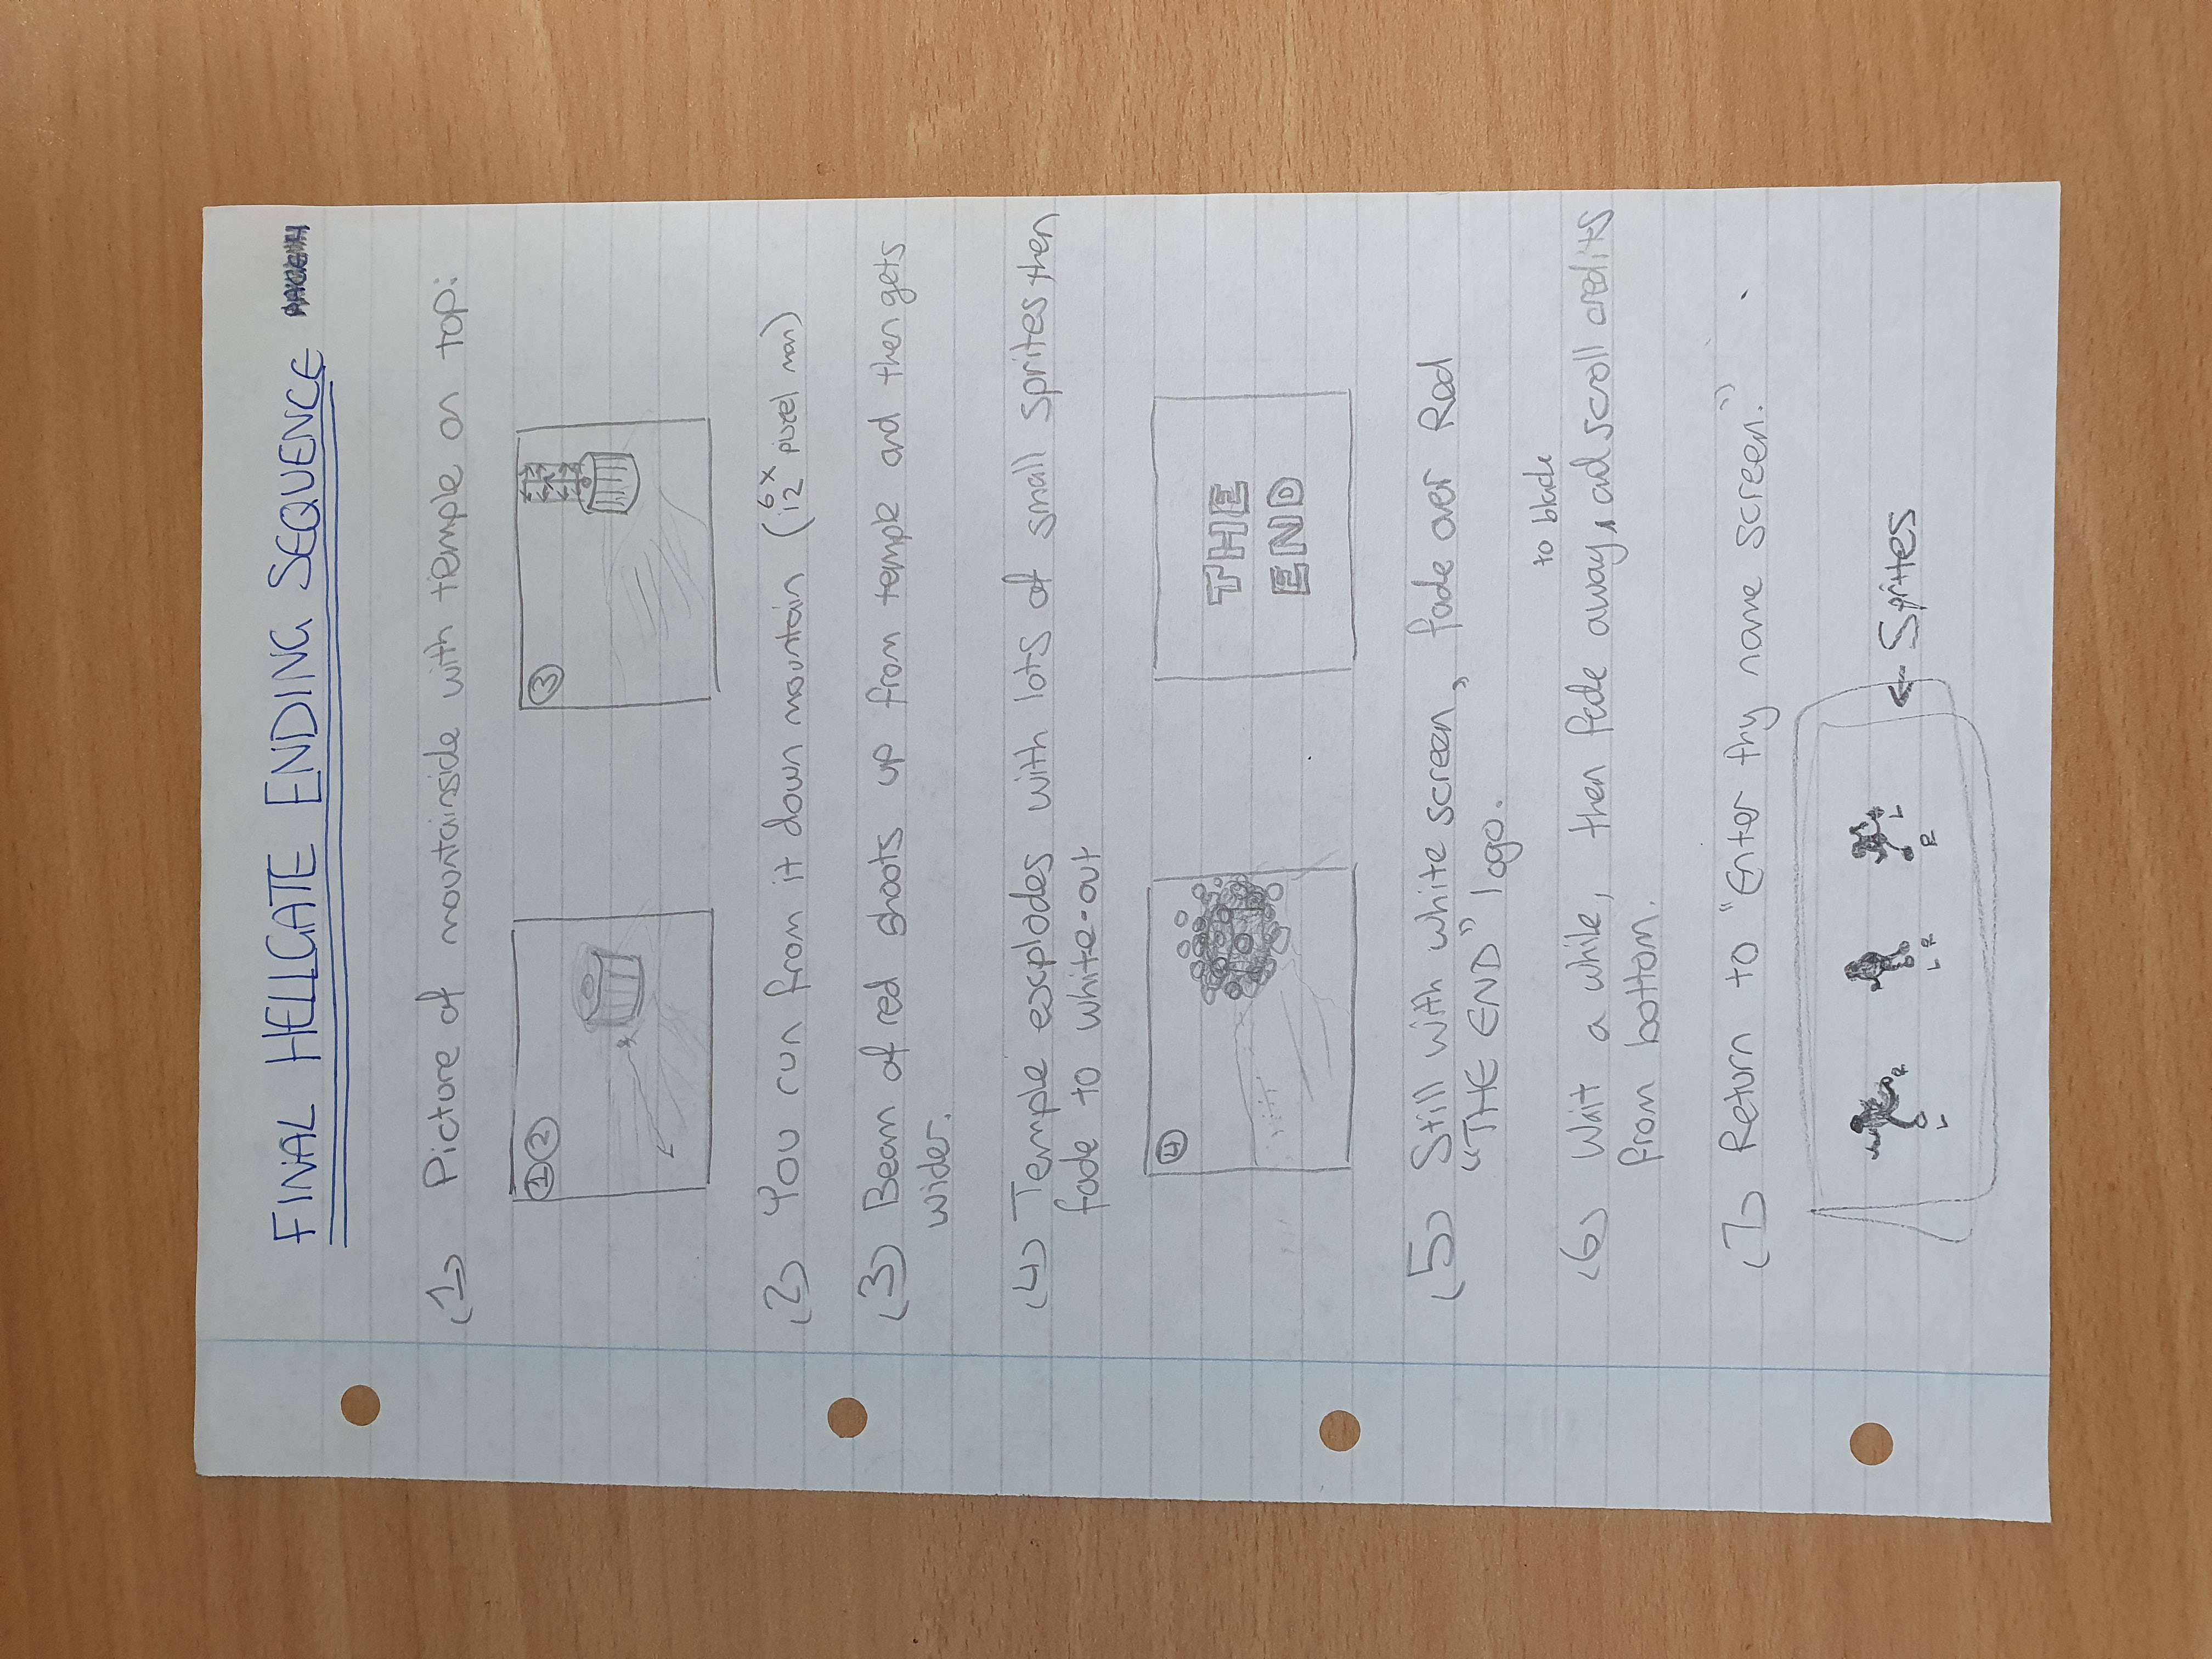 FINAL HELLGATE ENDING SEQUENCE
(1) Picture of mountainside with temple on top:
1 2
3
(2) You run from it down mountain (6x12 pixel man)
(3) Beam of red shoots up from temple and then gets
wider.
(4) Temple explodes with lots of small sprites then
fade to white-out
4
THE
END
(5) Still with white screen, fade over Red
"THE END" logo.
to black
(6) Wait a while, then fade away, and scroll credits
from bottom.
(7) Return to "Enter thy name screen."
R
L
L R
L
R
← Sprites